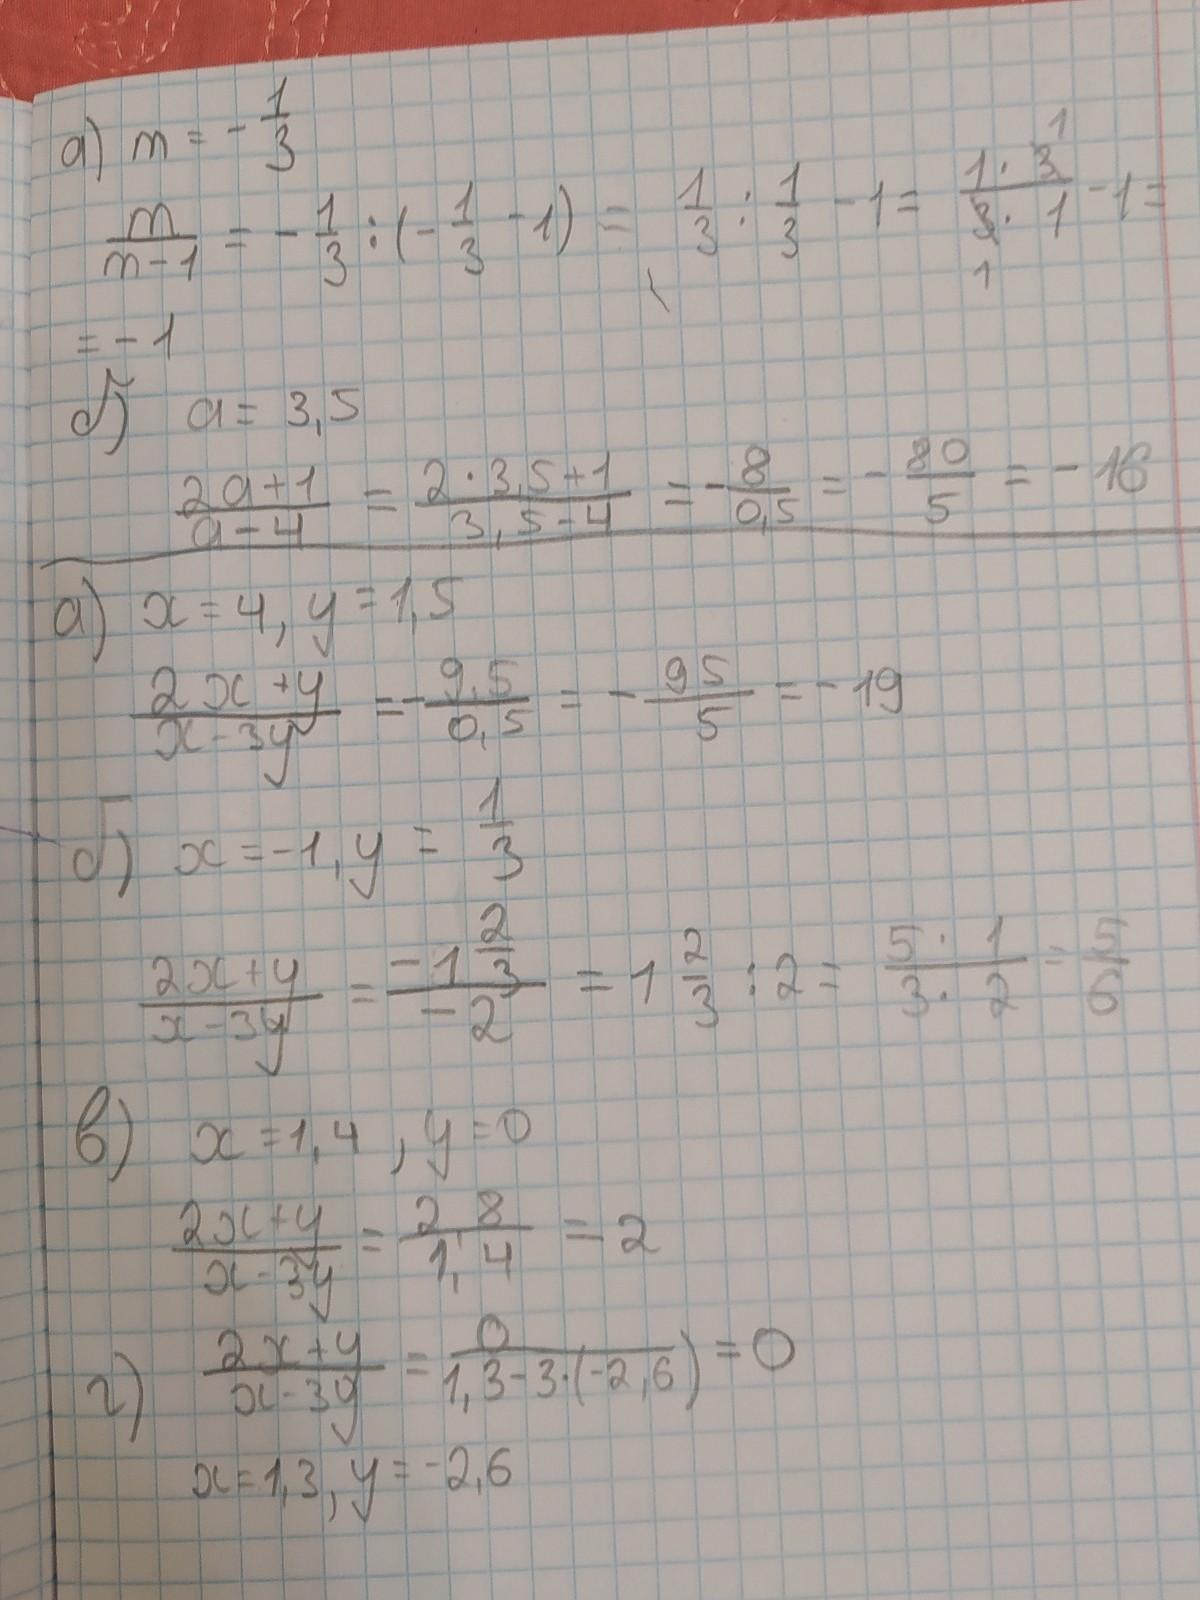 а) m = -1/3
m/(m-1) = -1/3 : (-1/3 - 1) = 1/3 : 1/3 - 1 = (1·3)/(3·1) - 1 =
= -1
б) a = 3,5
(2a+1)/(a-4) = (2·3,5+1)/(3,5-4) = -8/0,5 = -80/5 = -16
а) x = 4, y = 1,5
(2x+y)/(x-3y) = -9,5/0,5 = -95/5 = -19
б) x = -1, y = 1/3
(2x+y)/(x-3y) = (-1 2/3)/(-2) = 1 2/3 : 2 = (5·1)/(3·2) = 5/6
в) x = 1,4, y = 0
(2x+y)/(x-3y) = 2,8/1,4 = 2
г) (2x+y)/(x-3y) = 0/(1,3-3·(-2,6)) = 0
x = 1,3, y = -2,6